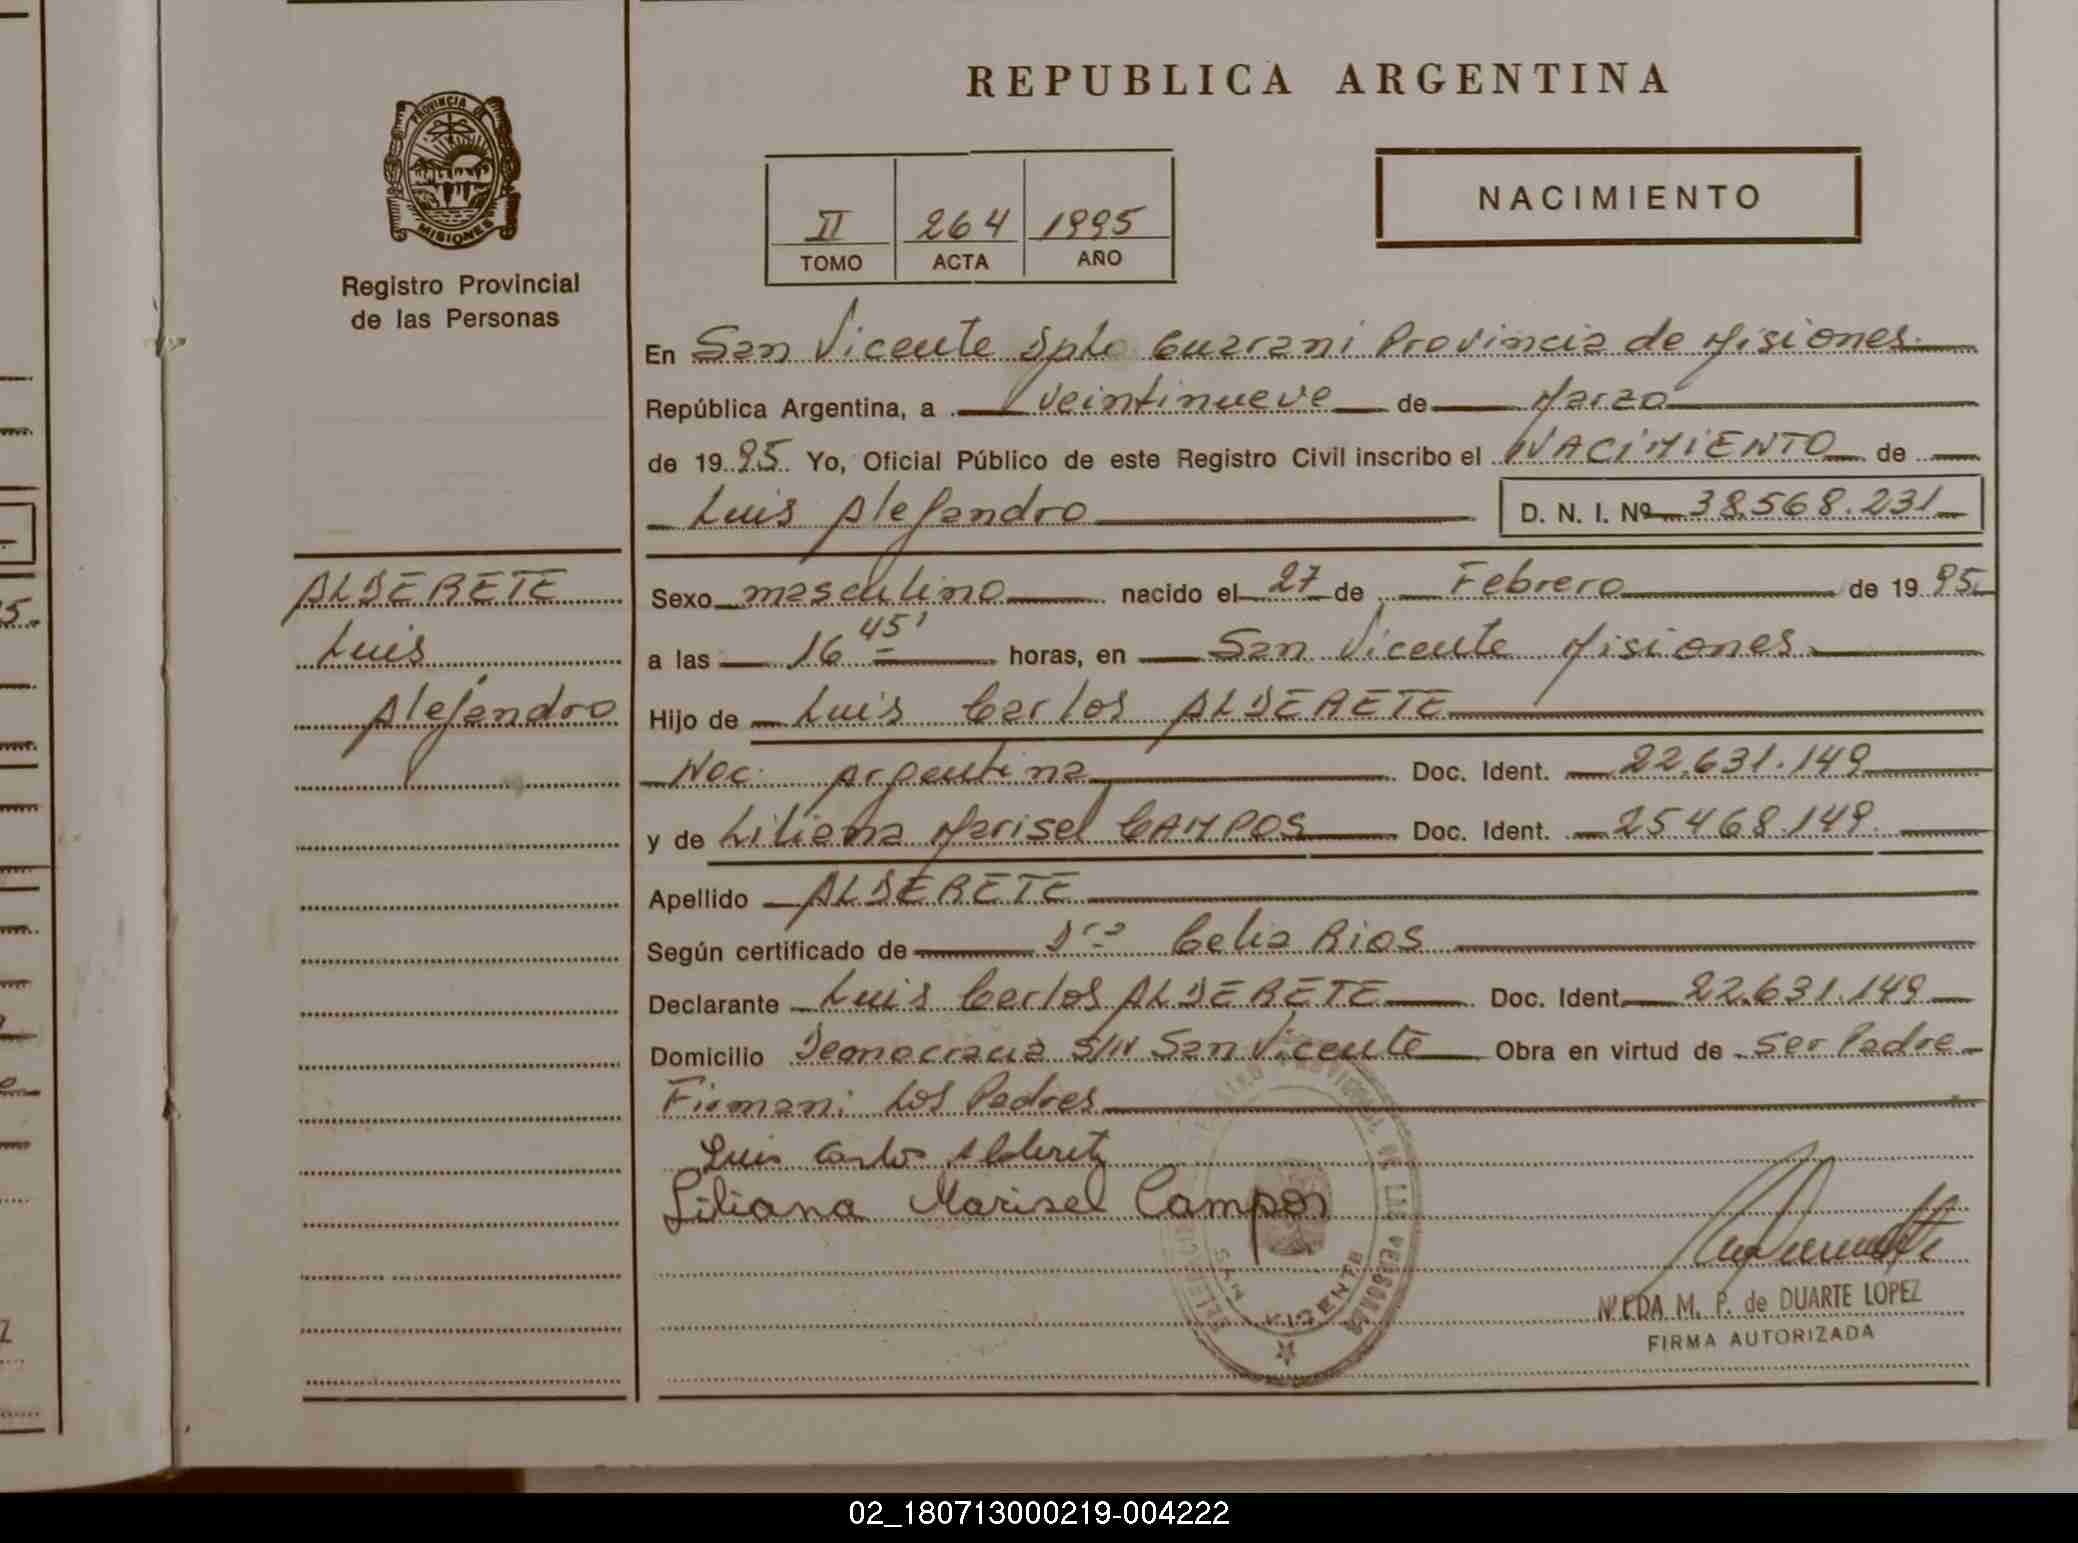 REPUBLICA ARGENTINA
PROVINCIA DE
MISIONES
Registro Provincial
de las Personas
II 264 1995
TOMO ACTA AÑO
NACIMIENTO
En San Vicente Dpto Guarani Provincia de Misiones
República Argentina, a veintinueve de Marzo
de 1995 Yo, Oficial Público de este Registro Civil inscribo el NACIMIENTO de
Luis Alejandro D. N. I. Nº 38.568.231
ALDERETE
Luis
Alejandro
Sexo masculino nacido el 27 de Febrero de 1995
a las 16 45' horas, en San Vicente Misiones
Hijo de Luis Carlos ALDERETE
Nac. Argentina Doc. Ident. 22.631.149
y de Liliana Marisel CAMPOS Doc. Ident. 25468.149
Apellido ALDERETE
Según certificado de Dra Celia Rios
Declarante Luis Carlos ALDERETE Doc. Ident. 22.631.149
Domicilio Democracia S/N San Vicente Obra en virtud de Ser Padre
Firman: Los Padres
Luis Carlos Alderete
Liliana Marisel Campos
PROVINCIAL DE LAS PERSONAS
SAN VICENTE
M. P. de DUARTE LOPEZ
FIRMA AUTORIZADA
02_180713000219-004222